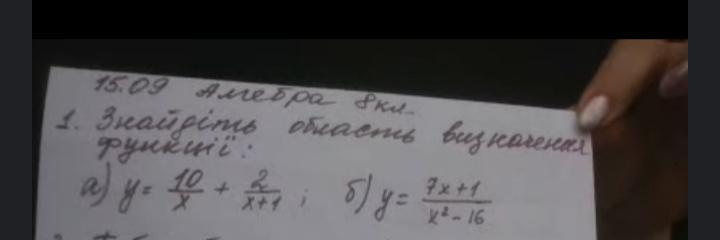 15.09 Алгебра 8кл.
1. Знайдіть область визначення
функції:
а) y = 10/x + 2/(x+1) ; б) y = (7x+1)/(x²-16)